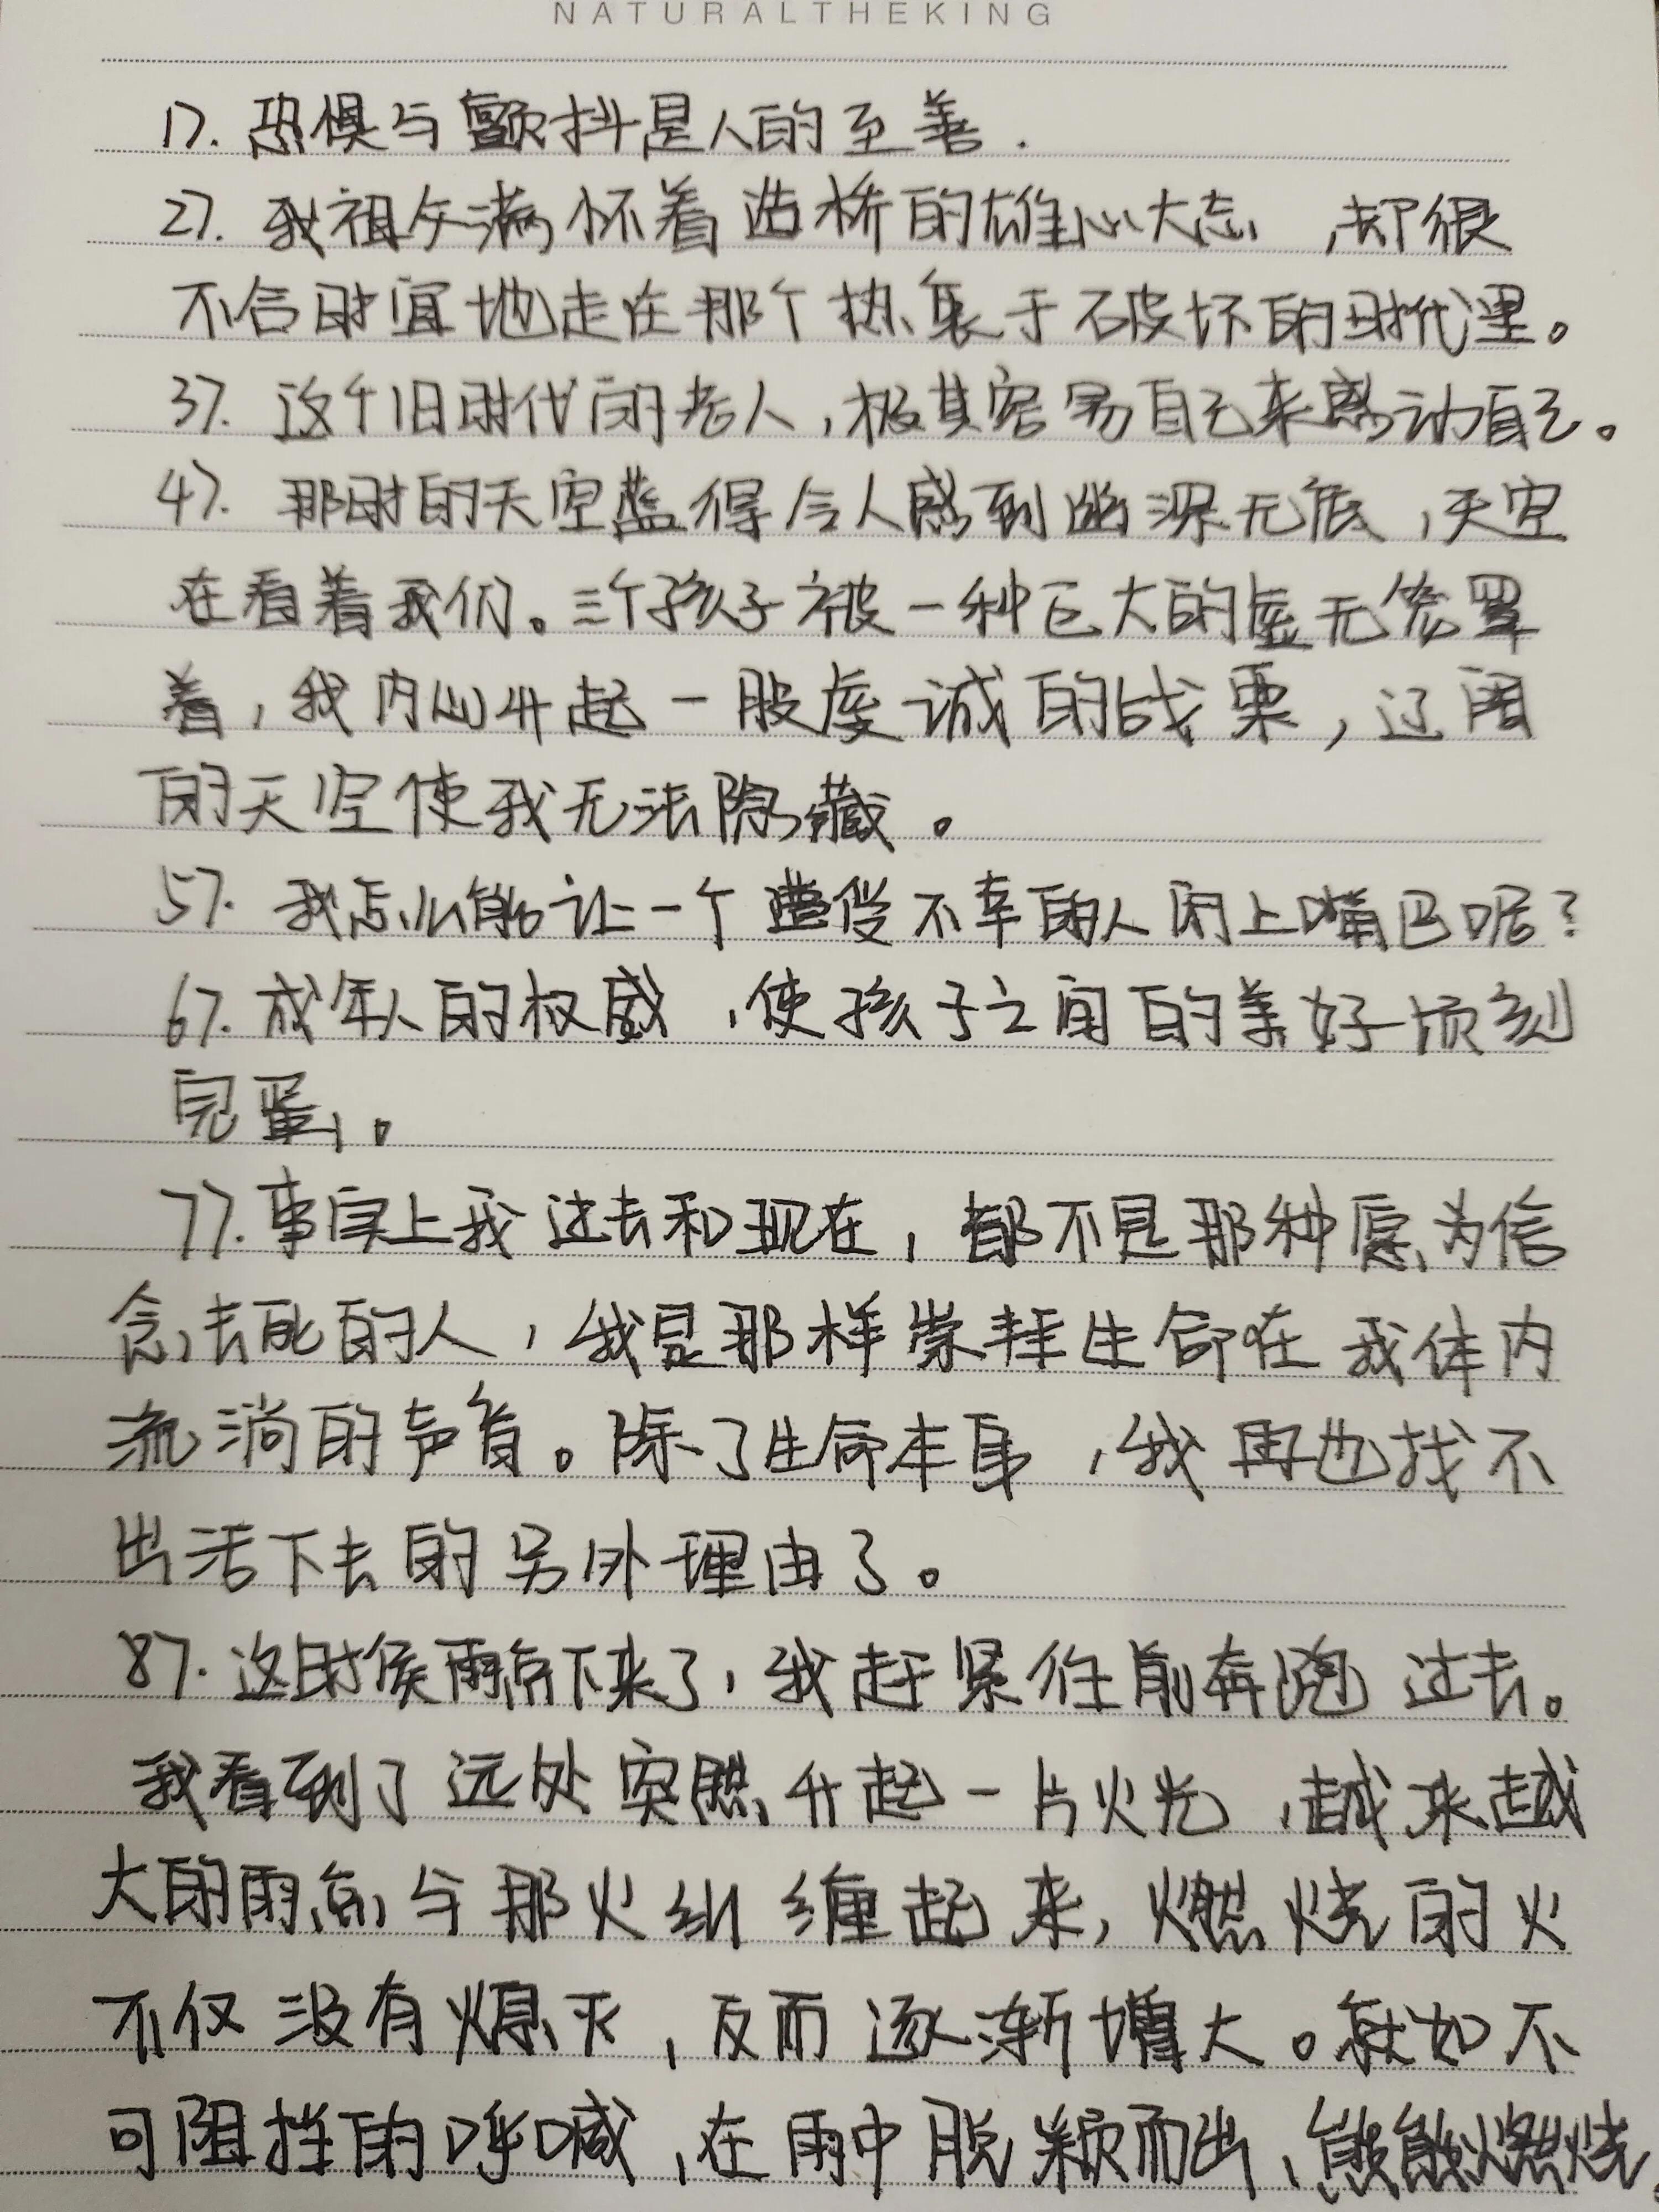 NATURALTHEKING
17. 恐惧与颤抖是人的至善.
27. 我祖父满怀着造桥的雄心大志，却很
不合时宜地走在那个热衷于破坏的时代里。
37. 这个旧时代的老人，极其容易自己来感动自己。
47. 那时的天空蓝得令人感到幽深无底，天空
在看着我们。三个孩子被一种巨大的虚无笼罩
着，我内心升起一股虔诚的战栗，辽阔
的天空使我无法隐藏。
57. 我怎么能让一个遭受不幸的人闭上嘴巴呢？
67. 成年人的权威，使孩子之间的美好顷刻
完蛋。
77. 事实上我过去和现在，都不是那种愿为信
念去死的人，我是那样崇拜生命在我体内
流淌的声音。除了生命本身，我再也找不
出活下去的另外理由了。
87. 这时候雨点下来了，我赶紧往前奔跑过去。
我看到了远处突然升起一片火光，越来越
大的雨点与那火纠缠起来，燃烧的火
不仅没有熄灭，反而逐渐增大。就如不
可阻挡的呼喊，在雨中脱颖而出，熊熊燃烧.